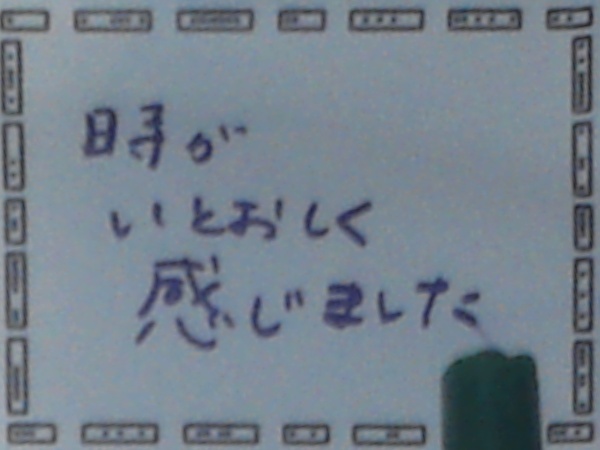 時が
いとおしく
感じました